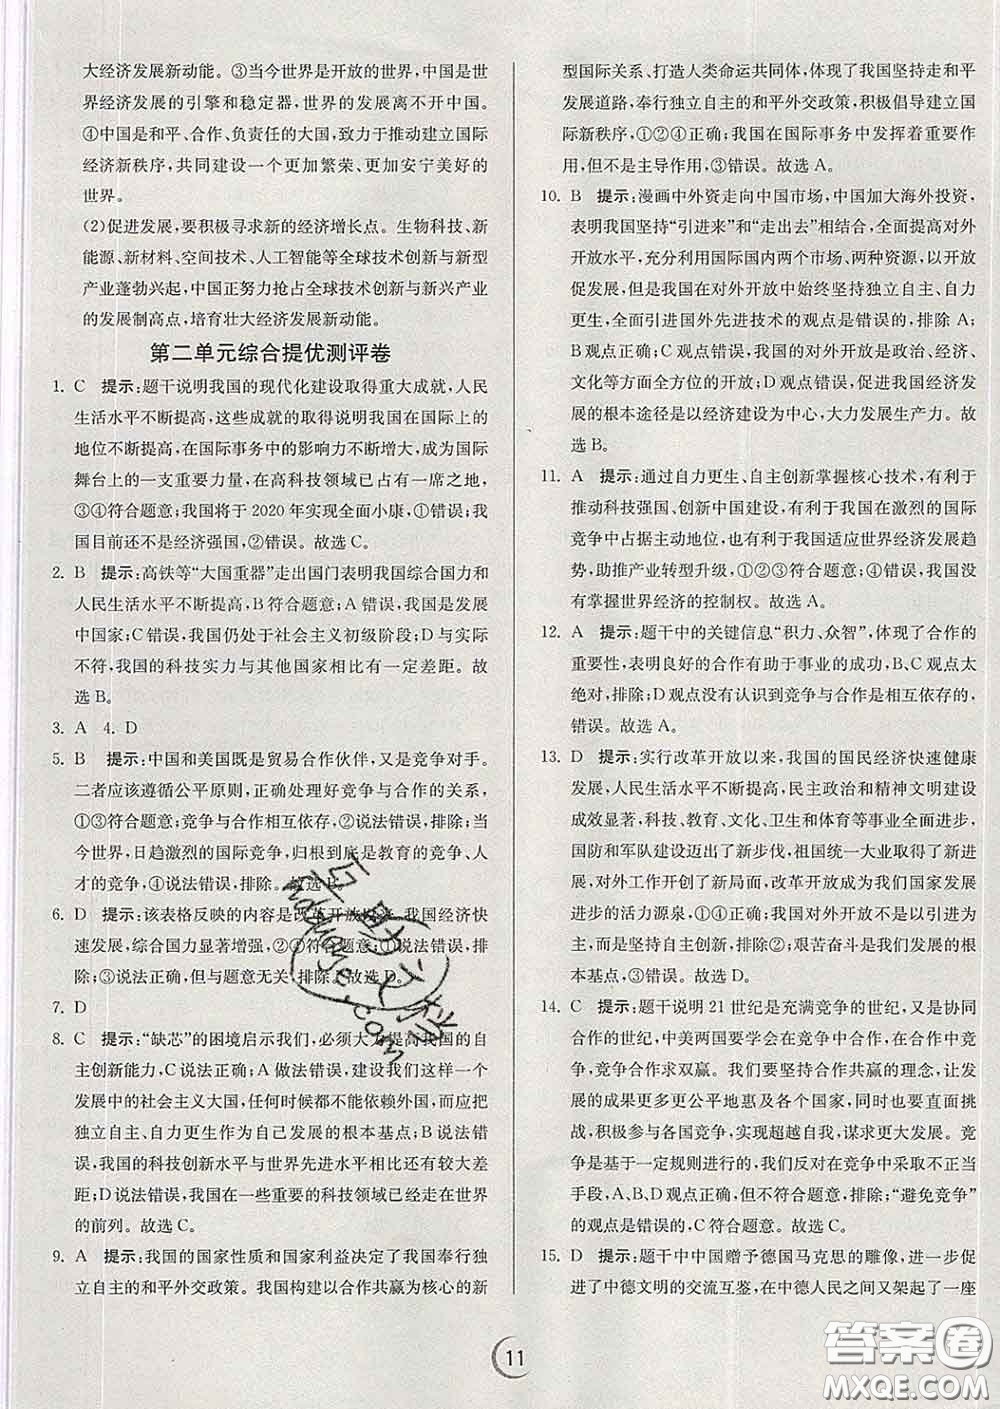 大经济发展新动能。③当今世界是开放的世界,中国是世
界经济发展的引擎和稳定器,世界的发展离不开中国。
④中国是和平、合作、负责任的大国,致力于推动建立国际
经济新秩序,共同建设一个更加繁荣、更加安宁美好的
世界。
(2)促进发展,要积极寻求新的经济增长点。生物科技、新
能源、新材料、空间技术、人工智能等全球技术创新与新型
产业蓬勃兴起,中国正努力抢占全球技术创新与新兴产业
的发展制高点,培育壮大经济发展新动能。
第二单元综合提优测评卷
1. C 提示:题干说明我国的现代化建设取得重大成就,人民
生活水平不断提高,这些成就的取得说明我国在国际上的
地位不断提高,在国际事务中的影响力不断增大,成为国际
舞台上的一支重要力量;在高科技领域已具有一席之地,
③④符合题意;我国将于2020年实现全面小康,①错误;我
国目前还不是经济强国,②错误。故选C。
2. B 提示:高铁等“大国重器”走出国门表明我国综合国力和
人民生活水平不断提高,B符合题意;A错误,我国是发展
中国家;C错误,我国仍处于社会主义初级阶段;D与实际
不符,我国的科技实力与其他国家相比有一定差距。故
选B。
3. A 4. D
5. B 提示:中国和美国既是贸易合作伙伴,又是竞争对手。
二者应该遵循公平原则,正确处理好竞争与合作的关系,
①③符合题意;竞争与合作相互依存,②说法错误,排除;当
今世界,日趋激烈的国际竞争,归根到底是教育的竞争、人
才的竞争,④说法错误,排除。故选B。
6. D 提示:该表格反映的内容是改革开放以来,我国经济快
速发展,综合国力显著增强,②④符合题意;①说法错误,排
除;③说法正确,但与题意无关,排除。故选D。
7. D
8. C 提示:“缺芯”的困境启示我们,必须大力提高我国的自
主创新能力,C说法正确;A做法错误,我国是一个独立自主
发展中的社会主义大国,任何时候都不能依赖外国,而应把
独立自主、自力更生作为自己发展的根本基点;B说法错
误,我国的科技创新水平与世界先进水平相比有较大差
距;D说法错误,我国在一些重要的科技领域已经走在世界
的前列。故选C。
9. A 提示:我国的国家性质和国家利益决定了我国奉行独
立自主的和平外交政策。我国构建以合作共赢为核心的新
型国际关系、打造人类命运共同体,体现了我国坚持走和平
发展道路,奉行独立自主的和平外交政策,积极倡导建立国
际新秩序,①②④正确;我国在国际事务中发挥着重要作
用,但不是主导作用,③错误。故选A。
10. B 提示:漫画中外资走向中国市场,中国加大海外投资,
表明我国坚持“引进来”和“走出去”相结合,全面提高对外
开放水平,充分利用国际国内两个市场、两种资源,以开放
促发展;但是我国在对外开放中始终坚持独立自主、自力
更生,全面引进国外先进技术的观点是错误的,排除A;
C观点错误,我国的对外开放是政治、经济、
文化等方面全方位的开放;D观点错误,促进我国经济发展
的根本途径是以经济建设为中心,大力发展生产力。故
选B。
11. A 提示:通过自力更生、自主创新掌握核心技术,有利于
推动科技强国、创新中国建设,有利于我国在激烈的国际
竞争中占据主动地位,也有利于我国适应世界经济发展趋
势,助推产业转型升级,①②③符合题意;④错误,我国没
有掌握世界经济的控制权。故选A。
12. A 提示:题干中的关键信息“积力、众智”,体现了合作的
重要性,表明良好的合作有助于事业的成功,B、C观点太
绝对,排除;D观点没有认识到竞争与合作是相互依存的,
错误。故选A。
13. D 提示:实行改革开放以来,我国的国民经济快速健康
发展,人民生活水平显著提高,民主政治和精神文明建设
成效显著,科技、教育、文化、卫生和体育等事业全面进步,
国防和军队建设迈出了新步伐,祖国统一大业取得了新进
展,对外工作开创了新局面,改革开放成为我们国家发展
进步的活力源泉,①④正确;我国对外开放不是以引进为
主,而是坚持自主创新,排除②;艰苦奋斗是我们发展的根
本基点,③错误。故选D。
14. C 提示:题干说明21世纪是充满竞争的世纪,又是协同
合作的世纪,中美两国要学会在竞争中合作,在合作中竞
争,竞争以求双赢。我们要坚持合作共赢的理念,让发
展的成果更多更公平地惠及各个国家,同时也要直面挑
战,积极参与各国竞争,实现超越自我,谋求更大发展。竞
争是基于一定规则进行的,我们反对在竞争中采取不正当
手段,A、B、D观点错误,但不符合题意,排除;“避免竞争”
的观点是错误的,C符合题意。故选C。
15. D 提示:题干中中国赠予德国马克思的雕像,进一步促
进了中德文明的交流互鉴,在中德人民之间又架起了一座
11
答案圈
MXQE.COM